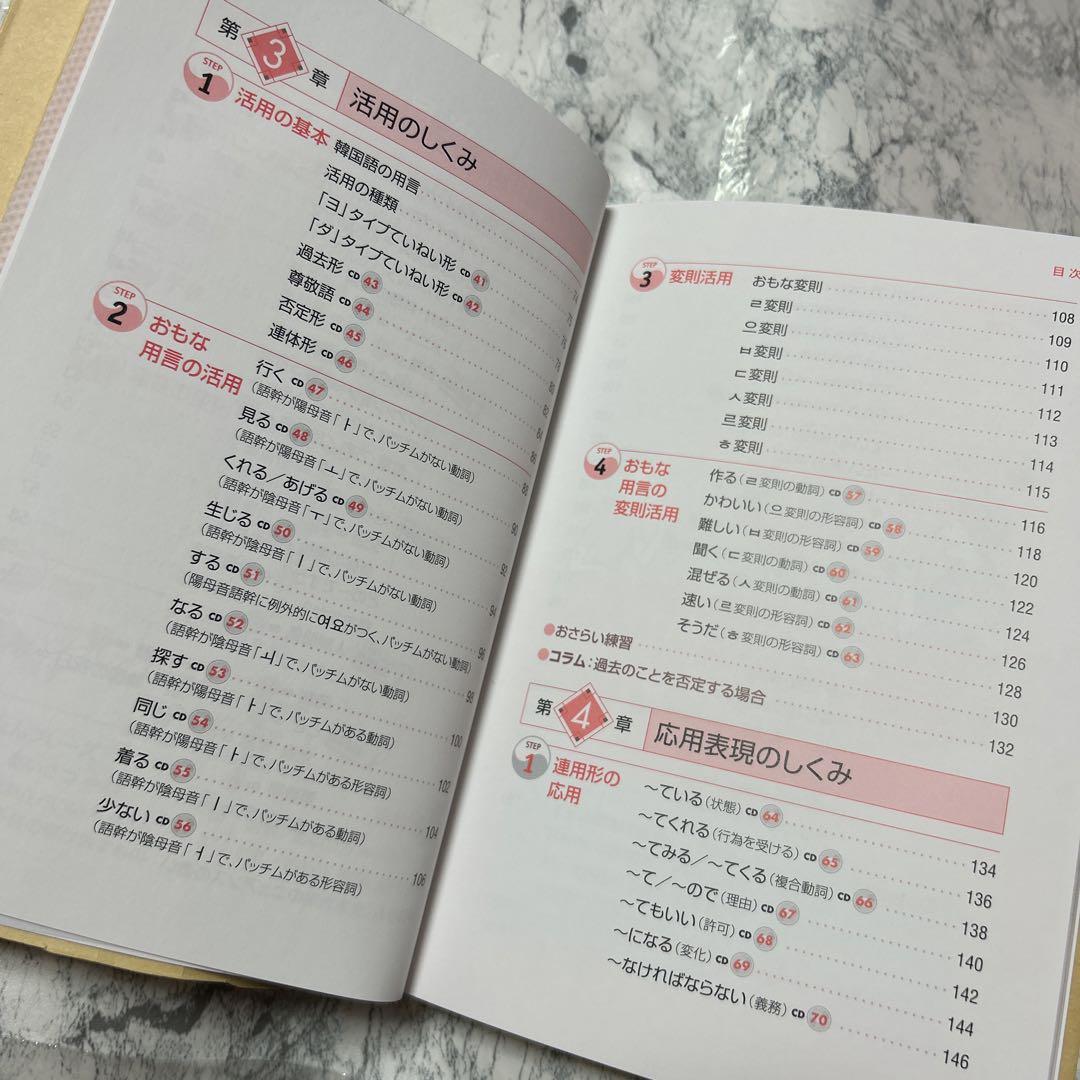 第3章 活用のしくみ
STEP 1 活用の基本
韓国語の用言 74
活用の種類 75
「ヨ」タイプていねい形 CD 41 76
「ダ」タイプていねい形 CD 42 78
過去形 CD 43 80
尊敬語 CD 44 82
否定形 CD 45 84
連体形 CD 46 86
STEP 2 おもな
用言の活用
行く CD 47 88
(語幹が陽母音「ㅏ」で、パッチムがない動詞)
見る CD 48 90
(語幹が陽母音「ㅗ」で、パッチムがない動詞)
くれる/あげる CD 49 92
(語幹が陰母音「ㅜ」で、パッチムがない動詞)
生じる CD 50 94
(語幹が陰母音「ㅣ」で、パッチムがない動詞)
する CD 51 96
(陽母音語幹に例外的に여요がつく、パッチムがない動詞)
なる CD 52 98
(語幹が陰母音「ㅚ」で、パッチムがない動詞)
探す CD 53 100
(語幹が陽母音「ㅏ」で、パッチムがある動詞)
同じ CD 54 102
(語幹が陽母音「ㅏ」で、パッチムがある形容詞)
着る CD 55 104
(語幹が陰母音「ㅣ」で、パッチムがある動詞)
少ない CD 56 106
(語幹が陰母音「ㅓ」で、パッチムがある形容詞)
目次
STEP 3 変則活用
おもな変則 108
ㄹ変則 109
으変則 110
ㅂ変則 111
ㄷ変則 112
ㅅ変則 113
르変則 114
ㅎ変則 115
STEP 4 おもな
用言の
変則活用
作る(ㄹ変則の動詞) CD 57 116
かわいい(으変則の形容詞) CD 58 118
難しい(ㅂ変則の形容詞) CD 59 120
聞く(ㄷ変則の動詞) CD 60 122
混ぜる(ㅅ変則の動詞) CD 61 124
速い(르変則の形容詞) CD 62 126
そうだ(ㅎ変則の形容詞) CD 63 128
●おさらい練習 130
●コラム:過去のことを否定する場合 132
第4章 応用表現のしくみ
STEP 1 連用形の
応用
〜ている(状態) CD 64 134
〜てくれる(行為を受ける) CD 65 136
〜てみる/〜てくる(複合動詞) CD 66 138
〜て/〜ので(理由) CD 67 140
〜てもいい(許可) CD 68 142
〜になる(変化) CD 69 144
〜なければならない(義務) CD 70 146